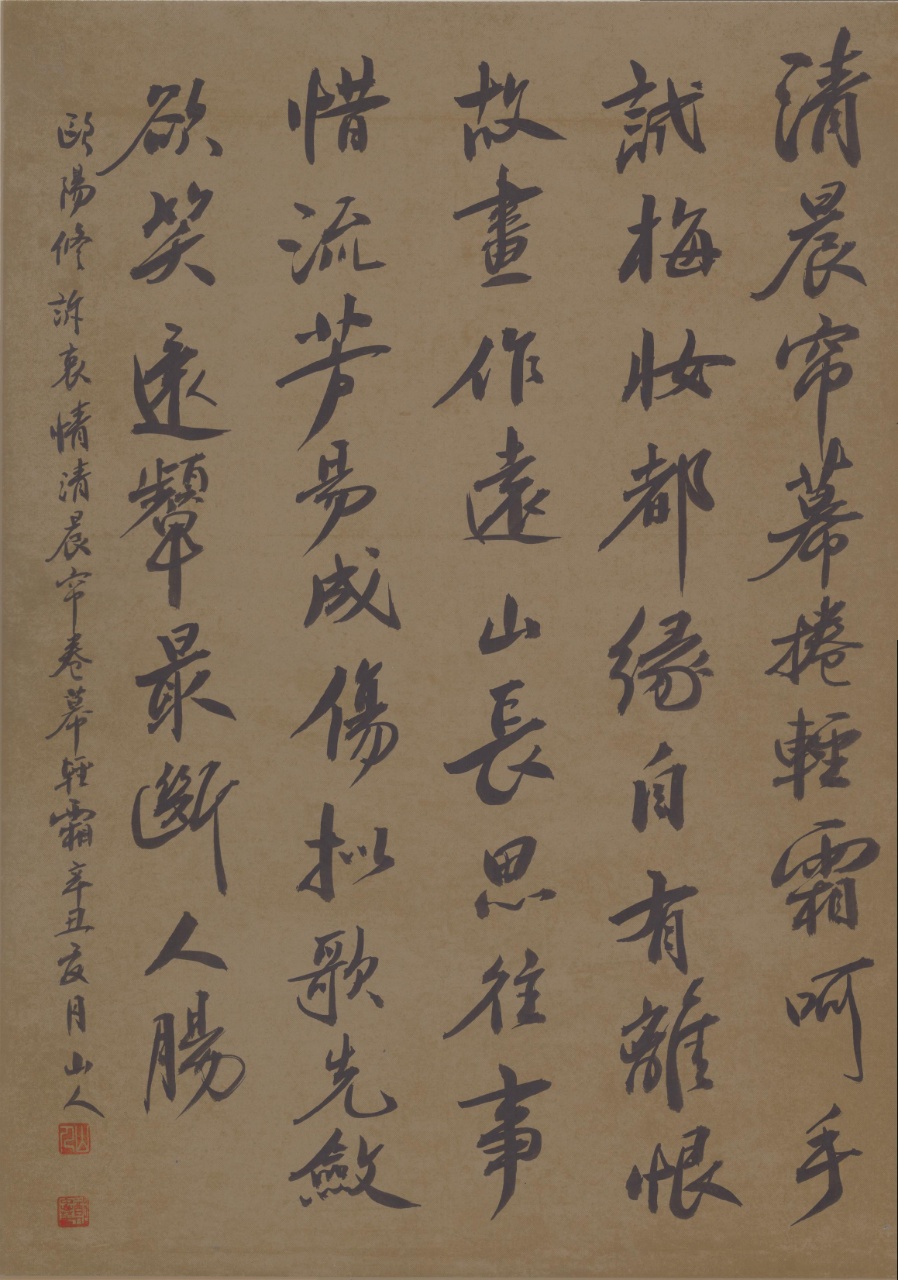 清晨帘幕捲輕霜呵手
試梅妝都緣自有離恨
故畫作遠山長思往事
惜流芳易成傷拟歌先斂
欲笑還顰最斷人腸
歐陽修訴衷情清晨帘卷幕輕霜辛丑夜月山人